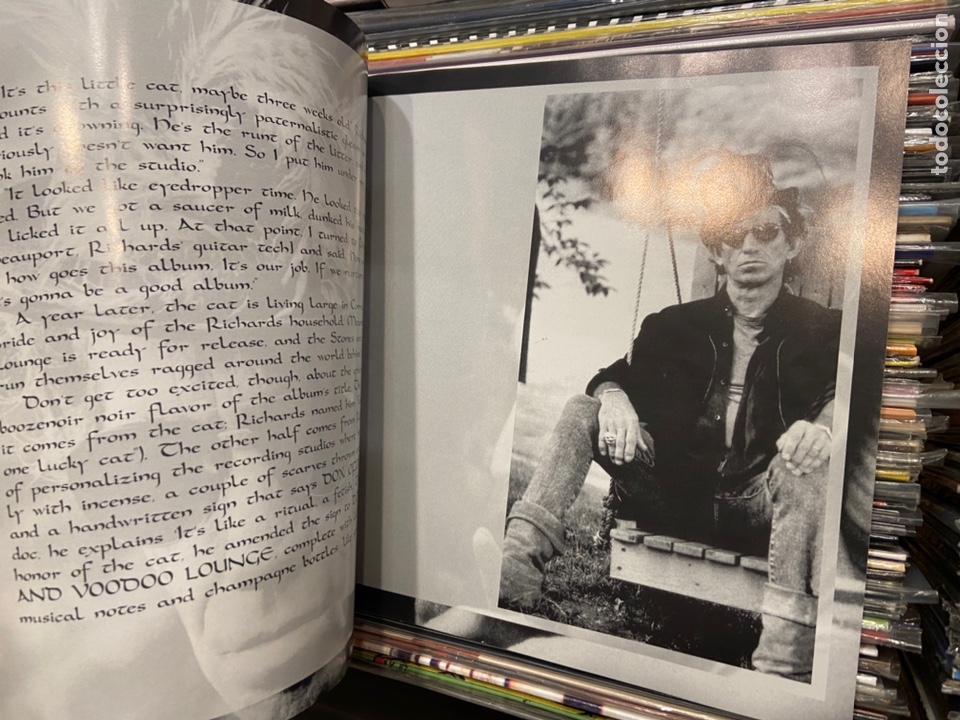 "It's this little cat, maybe three weeks old,"
ounts with a surprisingly paternalistic
d it's drowning. He's the runt of the litter,
iously doesn't want him. So I put him under
ok him to the studio."
"It looked like eyedropper time. He looked
ed. But we got a saucer of milk, dunked his
licked it all up. At that point, I turned to
eauport, Richards' guitar tech] and said,
how goes this album. It's our job. If we
's gonna be a good album."
A year later, the cat is living large in
ride and joy of the Richards household.
ounge is ready for release, and the Stones
run themselves ragged around the world
Don't get too excited, though, about the
boozenoir noir flavor of the album's title.
it comes from the cat; Richards named him
one lucky cat"). The other half comes from
of personalizing the recording studios where
ly with incense, a couple of scarves thrown
and a handwritten sign that says DOX
doc, he explains. "It's like a ritual, a fetish,
honor of the cat, he amended the sign to
AND VOODOO LOUNGE, complete with
musical notes and champagne bottles.
todocoleccion